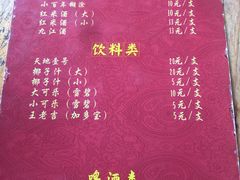 小百年糊涂 10元/支
红米酒（大） 10元/支
红米酒（小） 5元/支
九江酒 10元/支
饮料类
天地壹号 10元/支
椰子汁（大） 20元/支
椰子汁（小） 5元/支
大可乐（雪碧） 10元/支
小可乐（雪碧） 5元/支
王老吉（加多宝） 5元/支
啤酒类